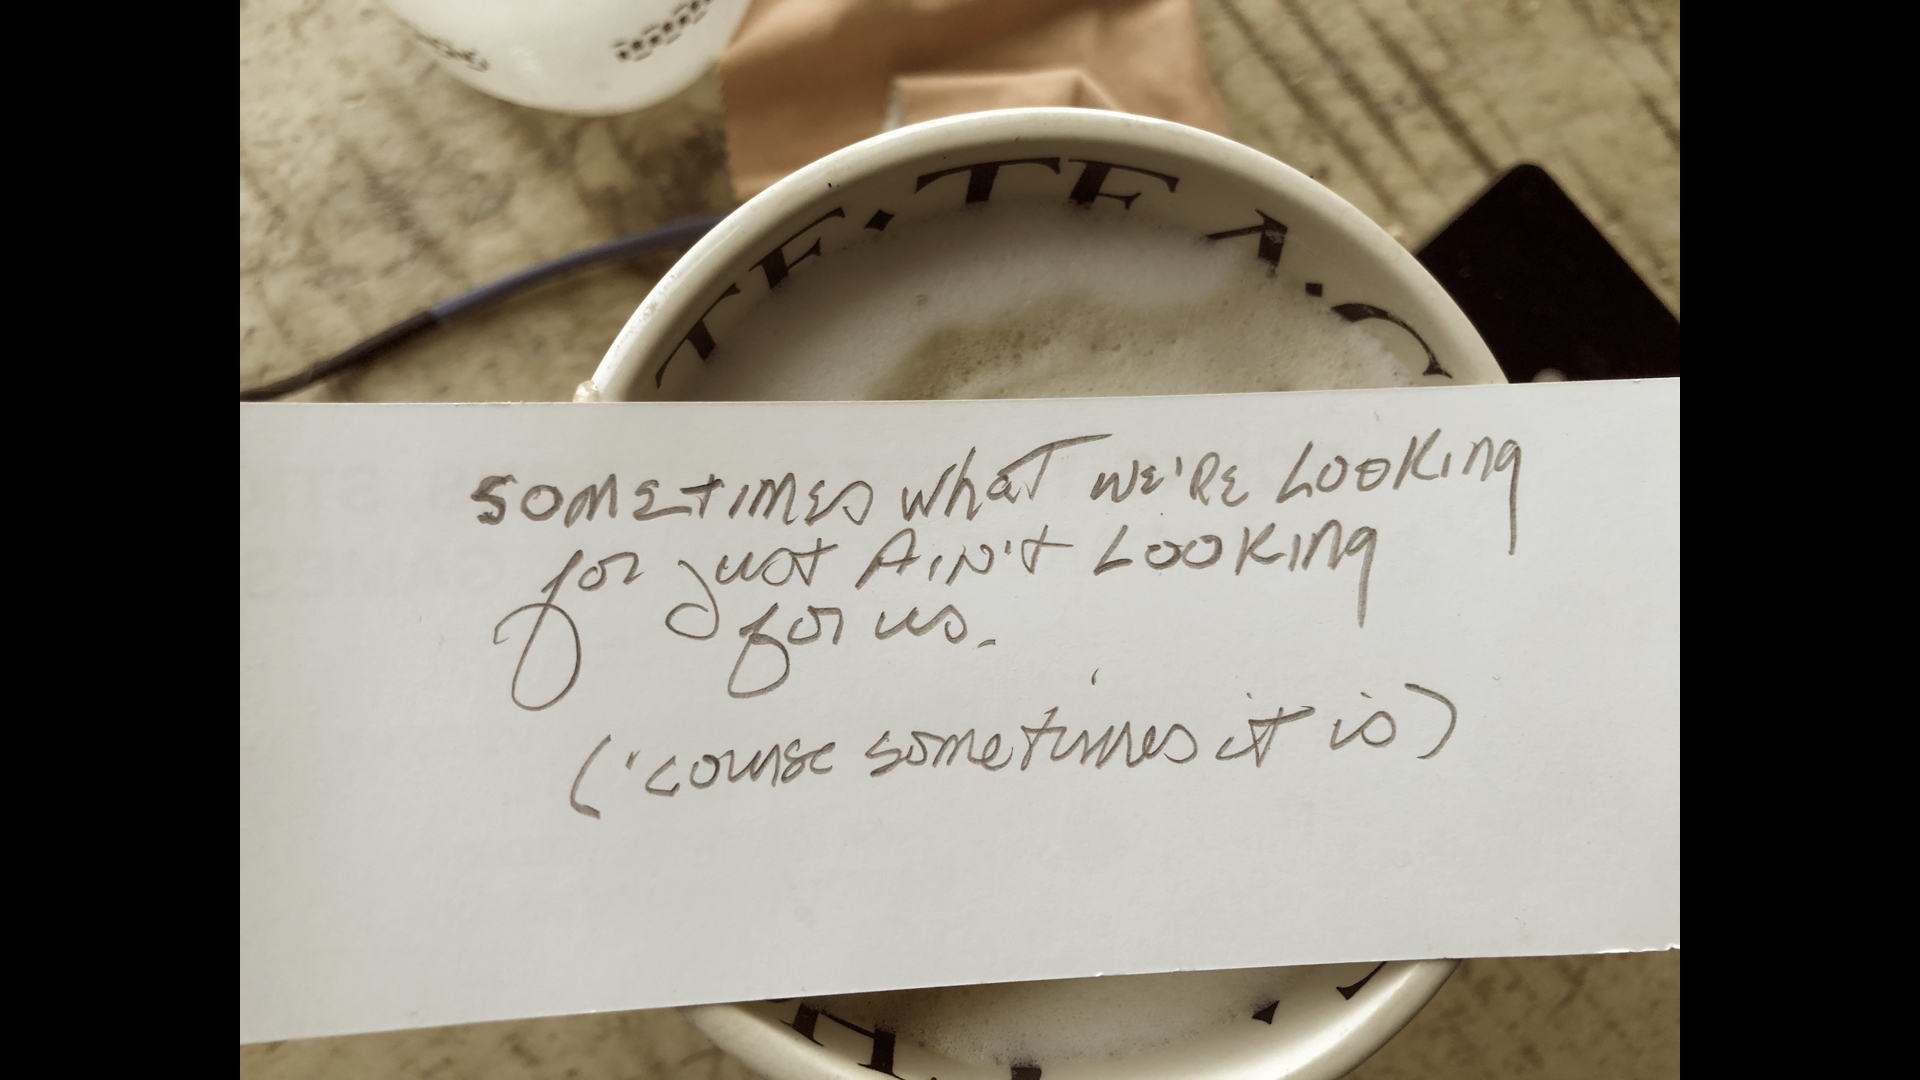 TE·TEA·C
SOMETIMES what WE'RE LOOKING
for just AIN't LOOKING
for us.
('course sometimes it is)